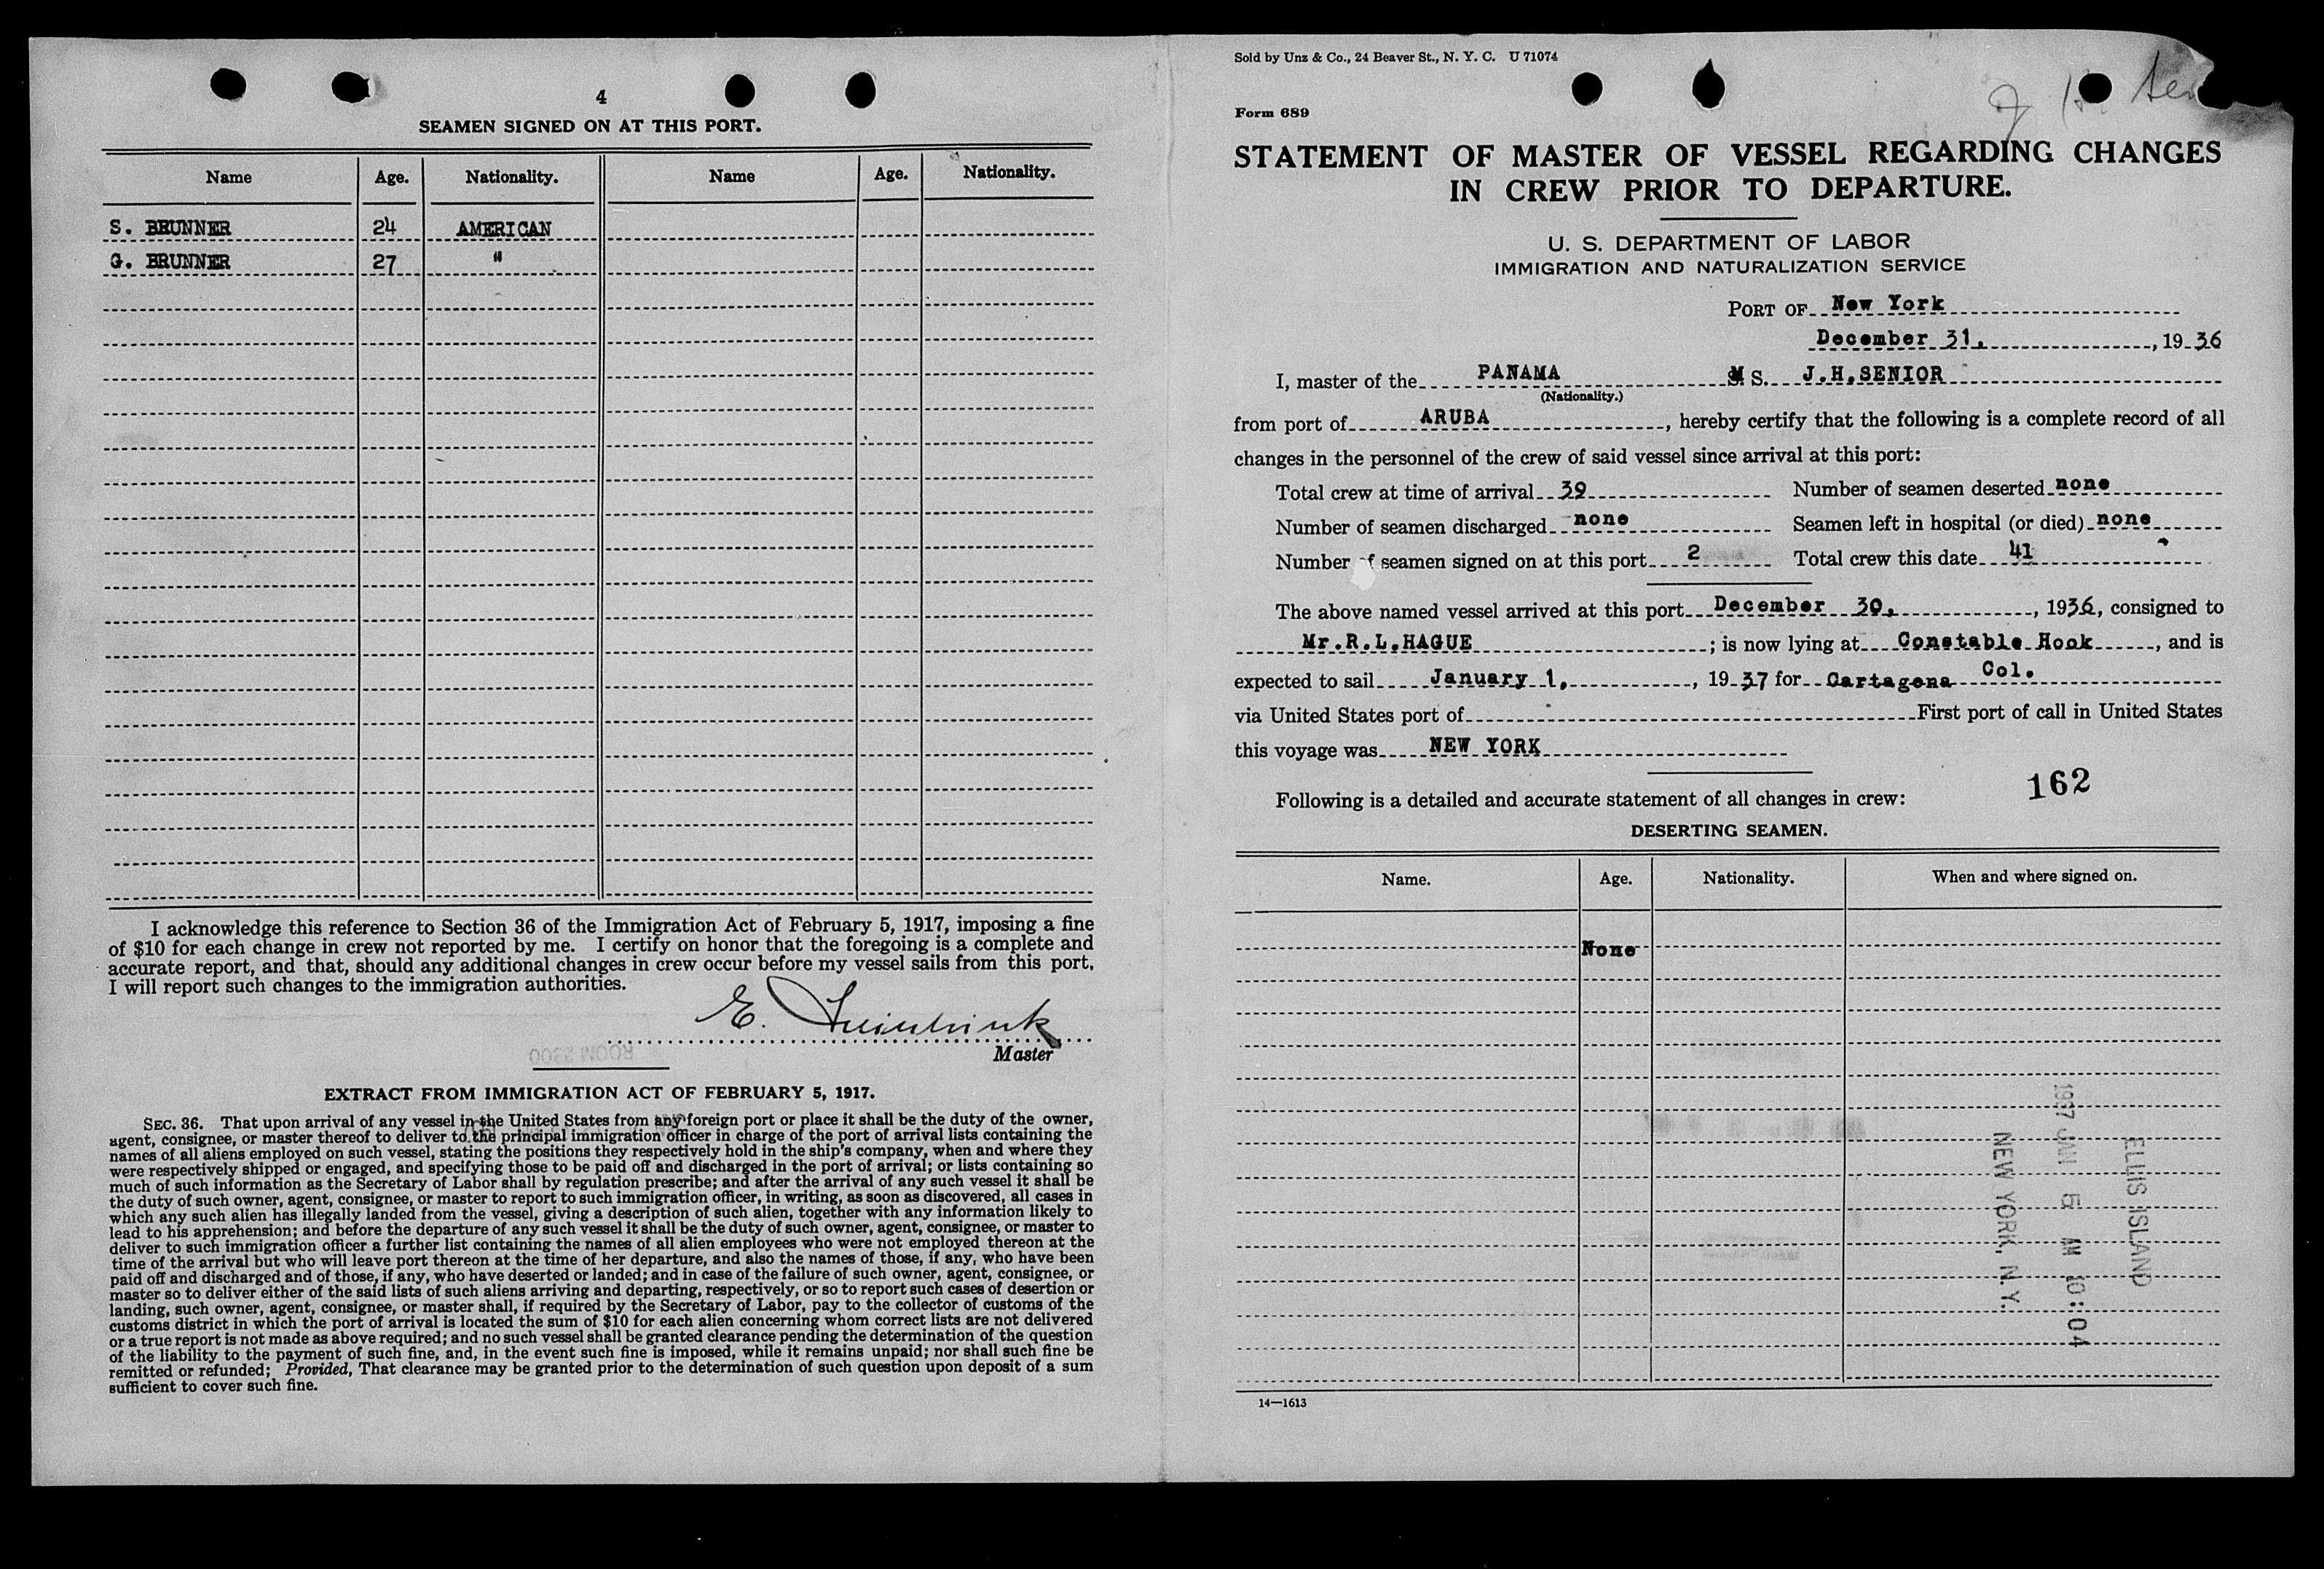 4
SEAMEN SIGNED ON AT THIS PORT.
Name Age. Nationality. Name Age. Nationality.
S. BRUNNER 24 AMERICAN
G. BRUNNER 27 "
I acknowledge this reference to Section 36 of the Immigration Act of February 5, 1917, imposing a fine
of $10 for each change in crew not reported by me. I certify on honor that the foregoing is a complete and
accurate report, and that, should any additional changes in crew occur before my vessel sails from this port,
I will report such changes to the immigration authorities.
E.
Master
ROOM 2300
EXTRACT FROM IMMIGRATION ACT OF FEBRUARY 5, 1917.
SEC. 36. That upon arrival of any vessel in the United States from any foreign port or place it shall be the duty of the owner,
agent, consignee, or master thereof to deliver to the principal immigration officer in charge of the port of arrival lists containing the
names of all aliens employed on such vessel, stating the positions they respectively hold in the ship's company, when and where they
were respectively shipped or engaged, and specifying those to be paid off and discharged in the port of arrival; or lists containing so
much of such information as the Secretary of Labor shall by regulation prescribe; and after the arrival of any such vessel it shall be
the duty of such owner, agent, consignee, or master to report to such immigration officer, in writing, as soon as discovered, all cases in
which any such alien has illegally landed from the vessel, giving a description of such alien, together with any information likely to
lead to his apprehension; and before the departure of any such vessel it shall be the duty of such owner, agent, consignee, or master to
deliver to such immigration officer a further list containing the names of all alien employees who were not employed thereon at the
time of the arrival but who will leave port thereon at the time of her departure, and also the names of those, if any, who have been
paid off and discharged and of those, if any, who have deserted or landed; and in case of the failure of such owner, agent, consignee, or
master so to deliver either of the said lists of such aliens arriving and departing, respectively, or so to report such cases of desertion or
landing, such owner, agent, consignee, or master shall, if required by the Secretary of Labor, pay to the collector of customs of the
customs district in which the port of arrival is located the sum of $10 for each alien concerning whom correct lists are not delivered
or a true report is not made as above required; and no such vessel shall be granted clearance pending the determination of the question
of the liability to the payment of such fine, and, in the event such fine is imposed, while it remains unpaid; nor shall such fine be
remitted or refunded; Provided, That clearance may be granted prior to the determination of such question upon deposit of a sum
sufficient to cover such fine.
Sold by Unz & Co., 24 Beaver St., N. Y. C. U 71074
Form 689
STATEMENT OF MASTER OF VESSEL REGARDING CHANGES
IN CREW PRIOR TO DEPARTURE.
U. S. DEPARTMENT OF LABOR
IMMIGRATION AND NATURALIZATION SERVICE
PORT OF New York
December 31, , 19 36
I, master of the PANAMA M S. J.H.SENIOR
(Nationality.)
from port of ARUBA , hereby certify that the following is a complete record of all
changes in the personnel of the crew of said vessel since arrival at this port:
Total crew at time of arrival 39 Number of seamen deserted none
Number of seamen discharged none Seamen left in hospital (or died) none
Number of seamen signed on at this port 2 Total crew this date 41
The above named vessel arrived at this port December 30, , 1936, consigned to
Mr.R.L.HAGUE ; is now lying at Constable Hook , and is
expected to sail January 1, , 19 37 for Cartagena Col.
via United States port of First port of call in United States
this voyage was NEW YORK
162
Following is a detailed and accurate statement of all changes in crew:
DESERTING SEAMEN.
Name. Age. Nationality. When and where signed on.
None
ELLIS ISLAND
1937 JAN 5 AM 10:04
NEW YORK, N. Y.
14—1613